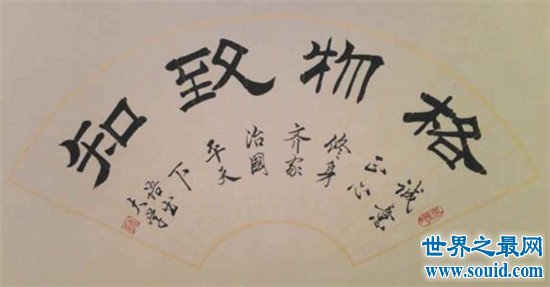 格物致知
诚意
正心
修身
齐家
治國
平天
下
语出
大学
世界之最网
www.souid.com